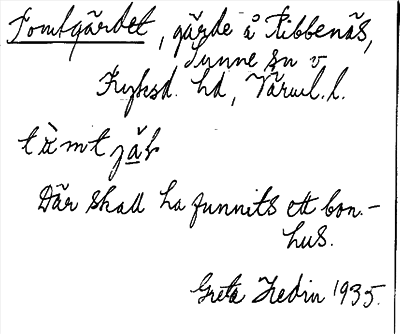 Tomtgärdet, gärde å Ribbenäs,
Sunne sn v
Fryksd. hd, Värml. l.
Där skall ha funnits ett bon-
hus.
Greta Hedin 1935.